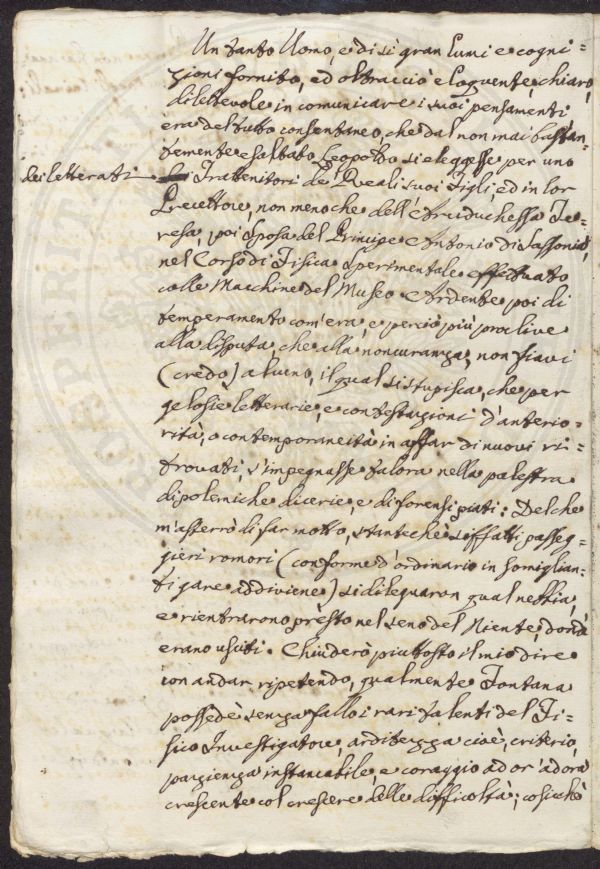 Un tanto Uomo, e di sì gran lumi e cogni=
zioni fornito, ed oltracciò eloquente, chiaro,
dilettevole in comunicare i suoi pensamenti
era del tutto consentaneo, che dal non mai bastan=
temente esaltato Leopoldo si eleggesse per uno
dei letterati Trattenitori de' Reali suoi Figli, ed in lor
Precettore, non meno che dell'Arciduchessa Te=
resa, poi Sposa del Principe Antonio di Sassonia,
nel Corso di Fisica Sperimentale effettuato
colle Macchine del Museo. Ardente poi di
temperamento com'era, e perciò più proclive
alla disputa, che alla noncuranza, non siavi
(credo) alcuno, il qual si stupisca, che per
gelosie letterarie, e contestazioni d'anterio=
rità, o contemporaneità in affar di nuovi ri=
trovati, s'impegnasse talora nella palestra
di polemiche dicerie, e di forensi piati: Del che
m'asterrò di far motto, stanteché siffatti passeg=
gieri romori (conforme d'ordinario in somiglian=
ti gare addiviene) si dileguaron qual nebbia,
e rientrarono presto nel seno del Niente, dond'
erano usciti. Chiuderò piuttosto il mio dire
con andar ripetendo, qualmente Fontana
possedè senza fallo i rari talenti del Fi=
sico Investigatore, arditezza cioè, criterio,
pazienza instancabile, e coraggio ad or' ad ora
crescente col crescere delle difficoltà; cosicchè